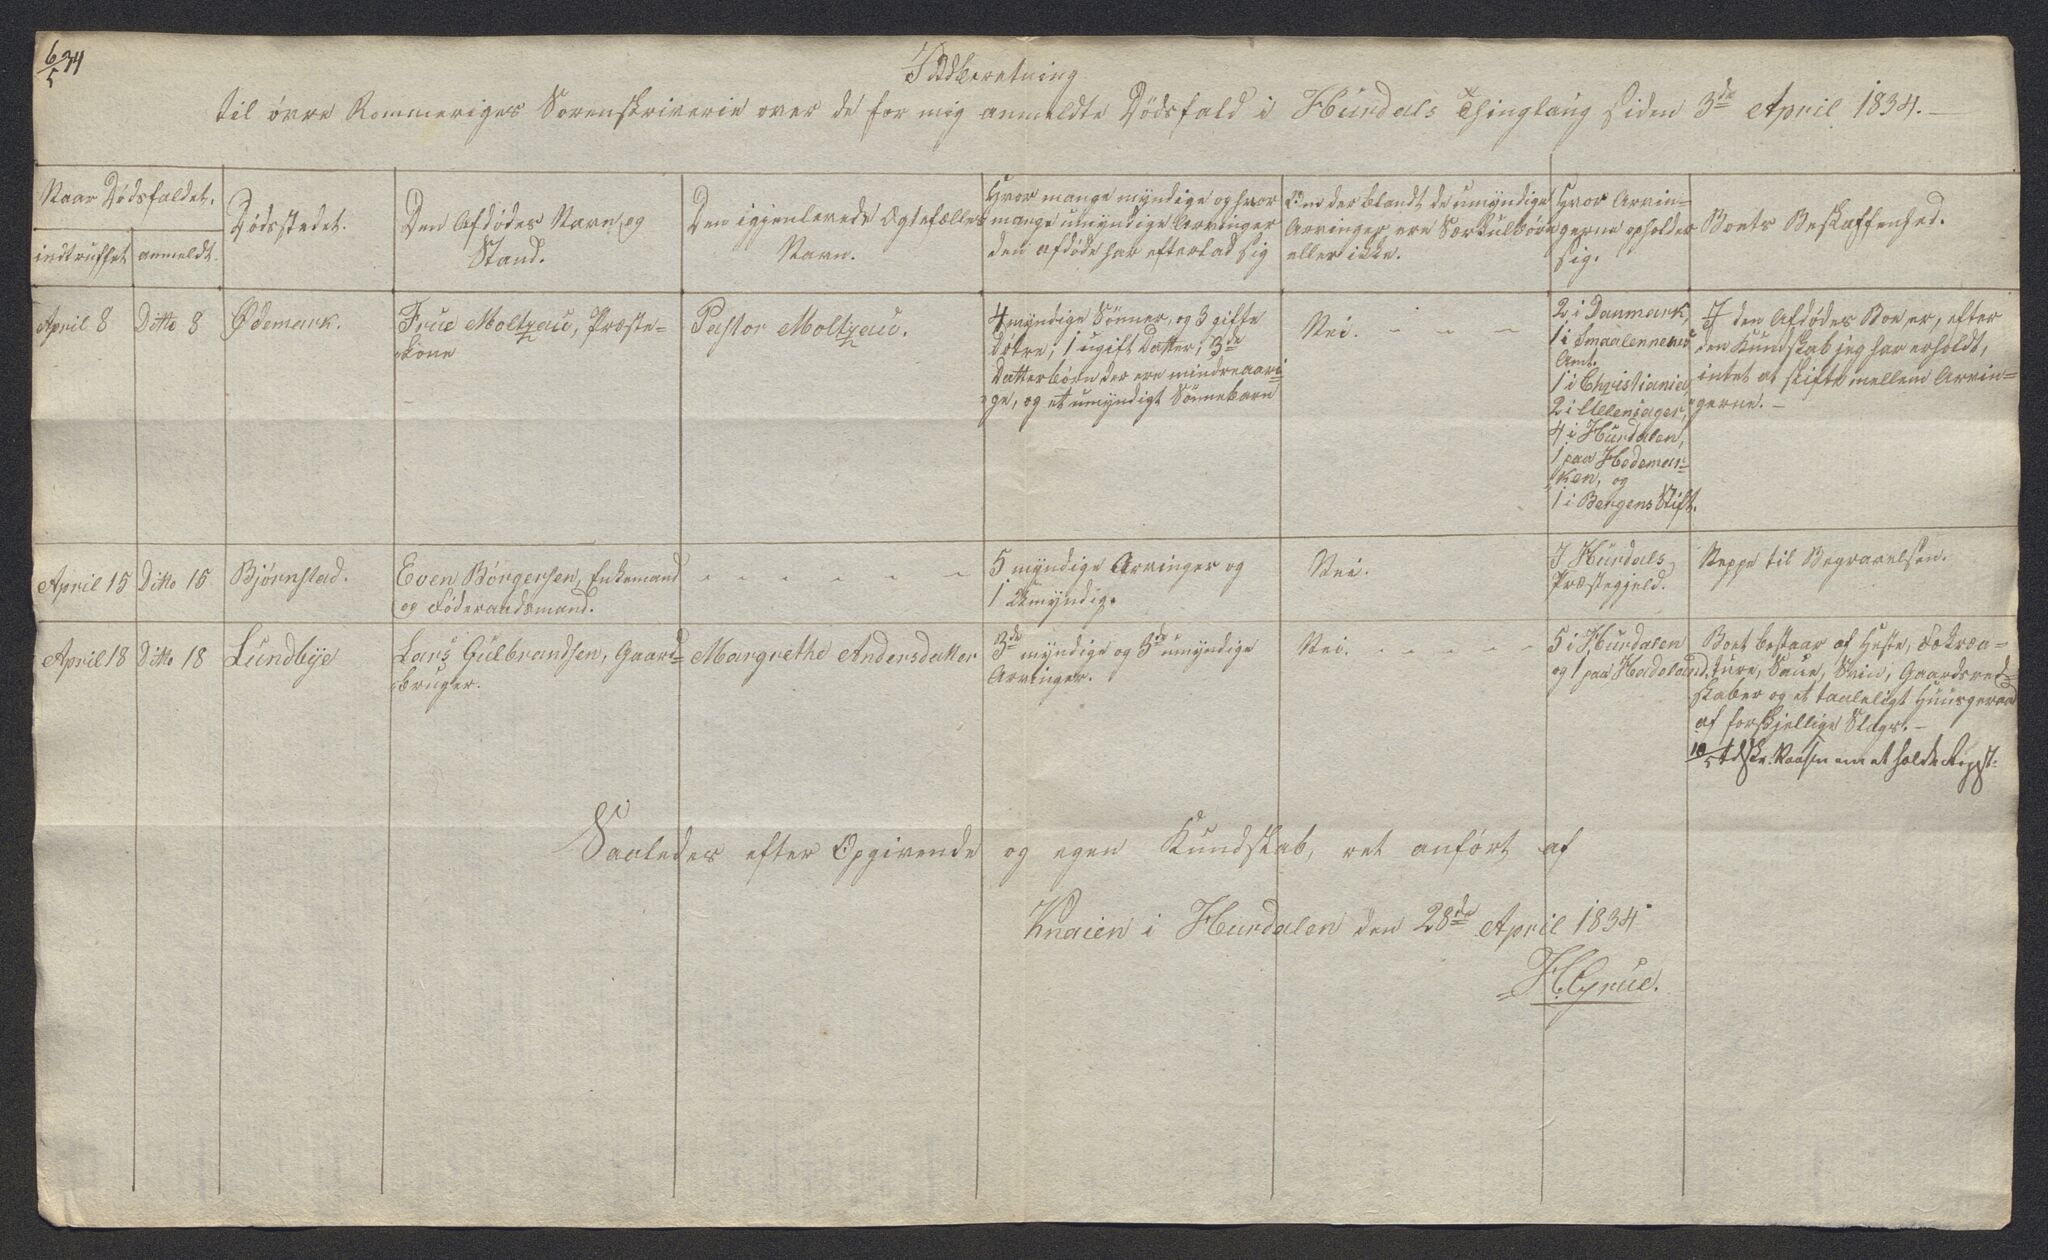 6/5 34
Indberetning
til øvre Rommeriges Sorenskriverie over de for mig anmeldte Dødsfald i Hurdals Thinglaug siden 3de April 1834.
Naar Dødsfaldet,
indtruffet
anmeldt.
Dødsstedet.
Den Afdødes Navn og
Stand.
Den igjenlevede Ægtefælles
Navn.
Hvor mange myndige og hvor
mange umyndige Arvinger
den afdøde har efterlad sig
Om der blandt de umyndige
Arvinger ere Særkulbørn
eller ikke.
Hvor Arvin=
gerne opholder
sig.
Boets Beskaffenhed.
April 8
Ditto 8
Ødemark.
Frue Moltzau, Præste=
kone
Pastor Moltzau.
4 myndige Sønner, og 3 gifte
døtre; 1 ugift Datter; 3de
Datterbørn der ere mindreaari=
ge, og et umyndigt Sønnebarn
Nei.
2 i Danmark,
1 i Smaalennenes
Amt.
1 i Christiania
2 i Ullensager,
4 i Hurdalen,
1 paa Hedemar=
ken, og
1 i Bergens Stift.
I den Afdødes Boe er, efter
den Kundskab jeg har erholdt,
intet at skifte mellem Arvin=
gerne.
April 15
Ditto 15
Bjørnstad.
Even Børgersen, Enkemand
og Føderaadsmand.
5 myndige Arvinger og
1 Umyndig.
Nei.
I Hurdals
Præstegjeld.
Neppe til Begravelsen.
April 18
Ditto 18
Lundbye
Lars Gulbrandsen, Gaard=
bruger.
Margrethe Andersdatter
3de myndige og 3de umyndige
Arvinger.
Nei.
5 i Hurdalen
og 1 paa Hadeland.
Boet bestaar af Heste, Fækrea=
ture, Saue, Sviin, Gaardsred=
skaber og et taaleligt Huusgeraad
af forskjellige Slags.
10/5 tilskr. om at holde Regist.
Saaledes efter Opgivende og egen Kundskab, ret anført af
Knaien i Hurdalen den 28de April 1834
H. Grue.